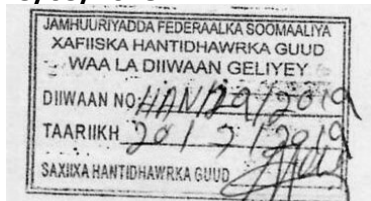 JAMHUURIYADDA FEDERAALKA SOOMAALIYA
XAFIISKA HANTIDHAWRKA GUUD
WAA LA DIIWAAN GELIYEY
DIIWAAN NO: HAN/29/2019
TAARIIKH 20/7/2019
SAXIIXA HANTIDHAWRKA GUUD